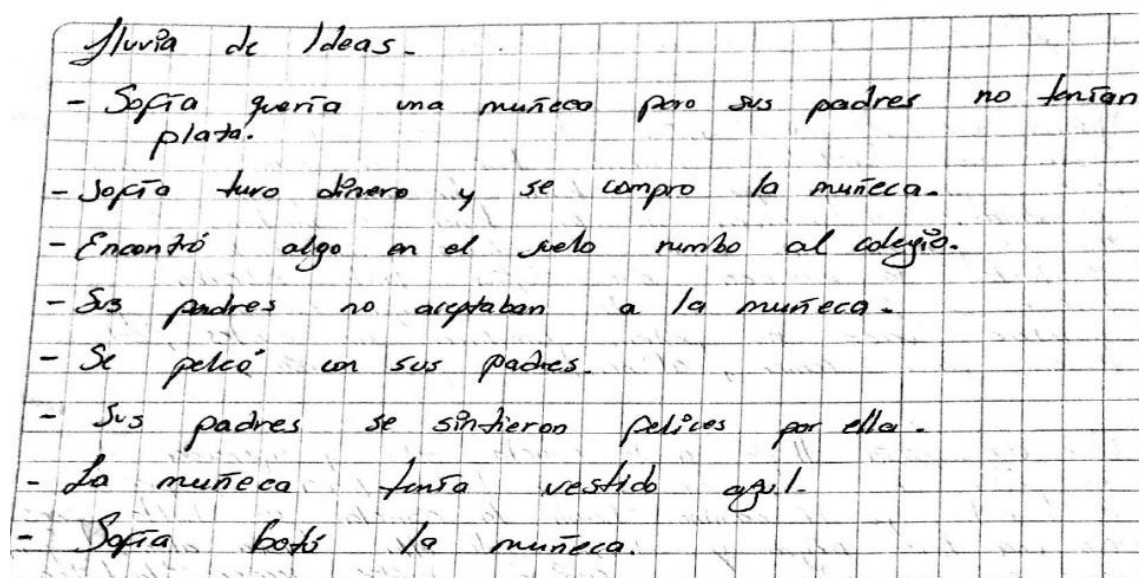 Lluvia de Ideas.
- Sofía quería una muñeca pero sus padres no tenían
plata.
- Sofía tuvo dinero y se compro la muñeca.
- Encontró algo en el suelo rumbo al colegio.
- Sus padres no aceptaban a la muñeca.
- Se peleó con sus padres.
- Sus padres se sintieron felices por ella.
- La muñeca tenía vestido azul.
- Sofía botó la muñeca.